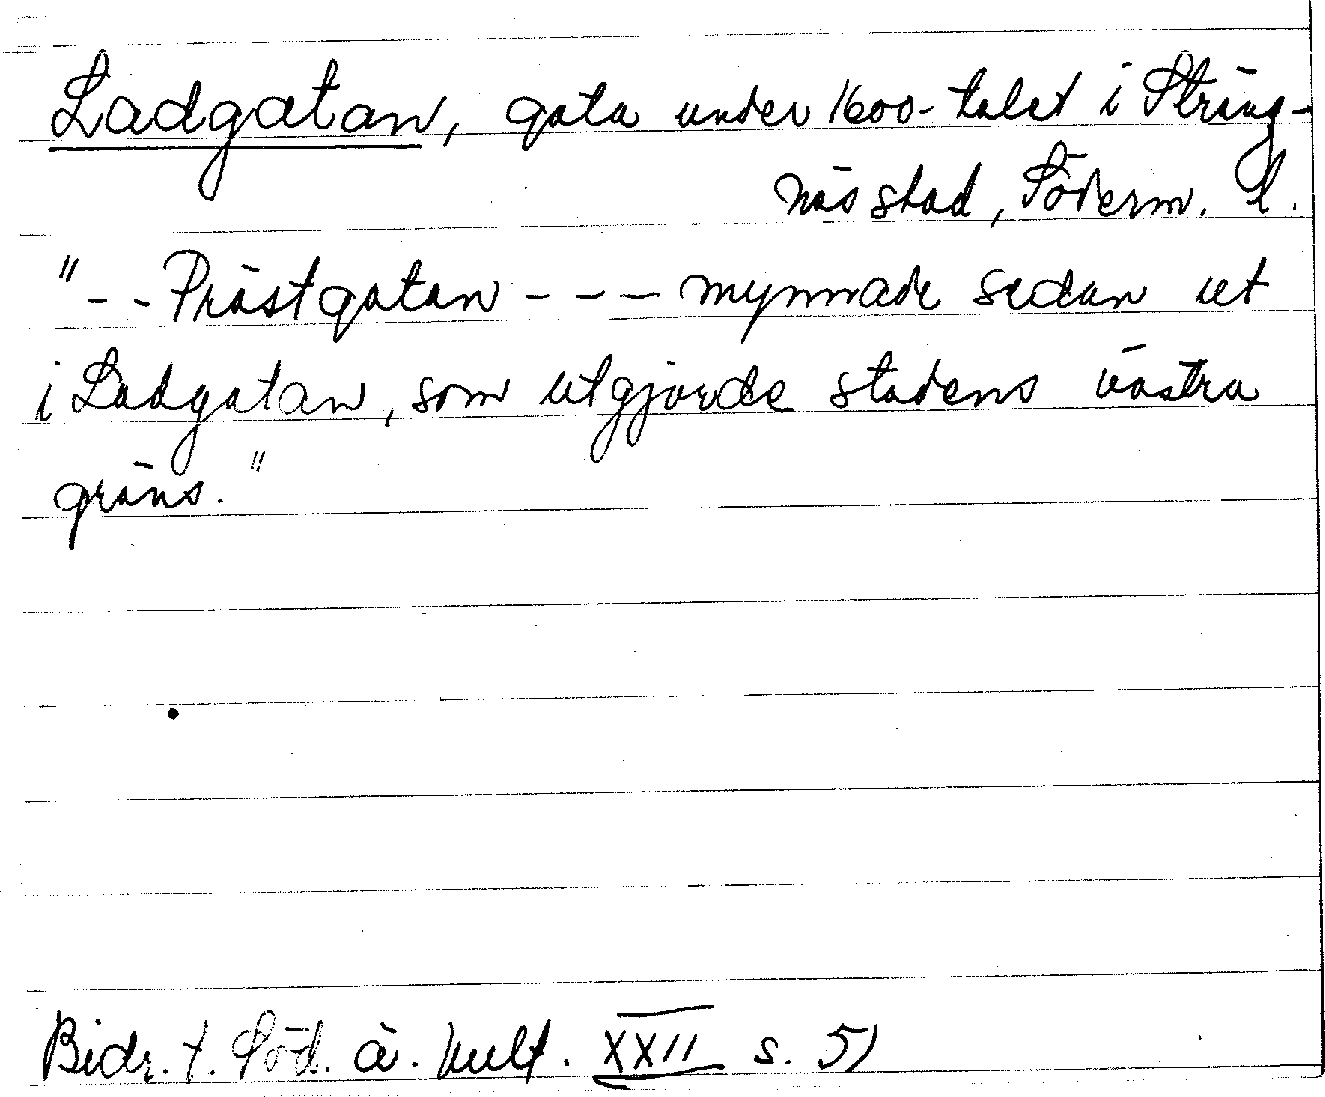 Ladgatan, gata under 1600-talet i Sträng-
näs stad, Söderm. l.
"-- Prästgatan --- mynnade sedan ut
i Ladgatan, som utgjorde stadens västra
gräns."
Bidr. t. Söd. ä. kult. XXII s. 51